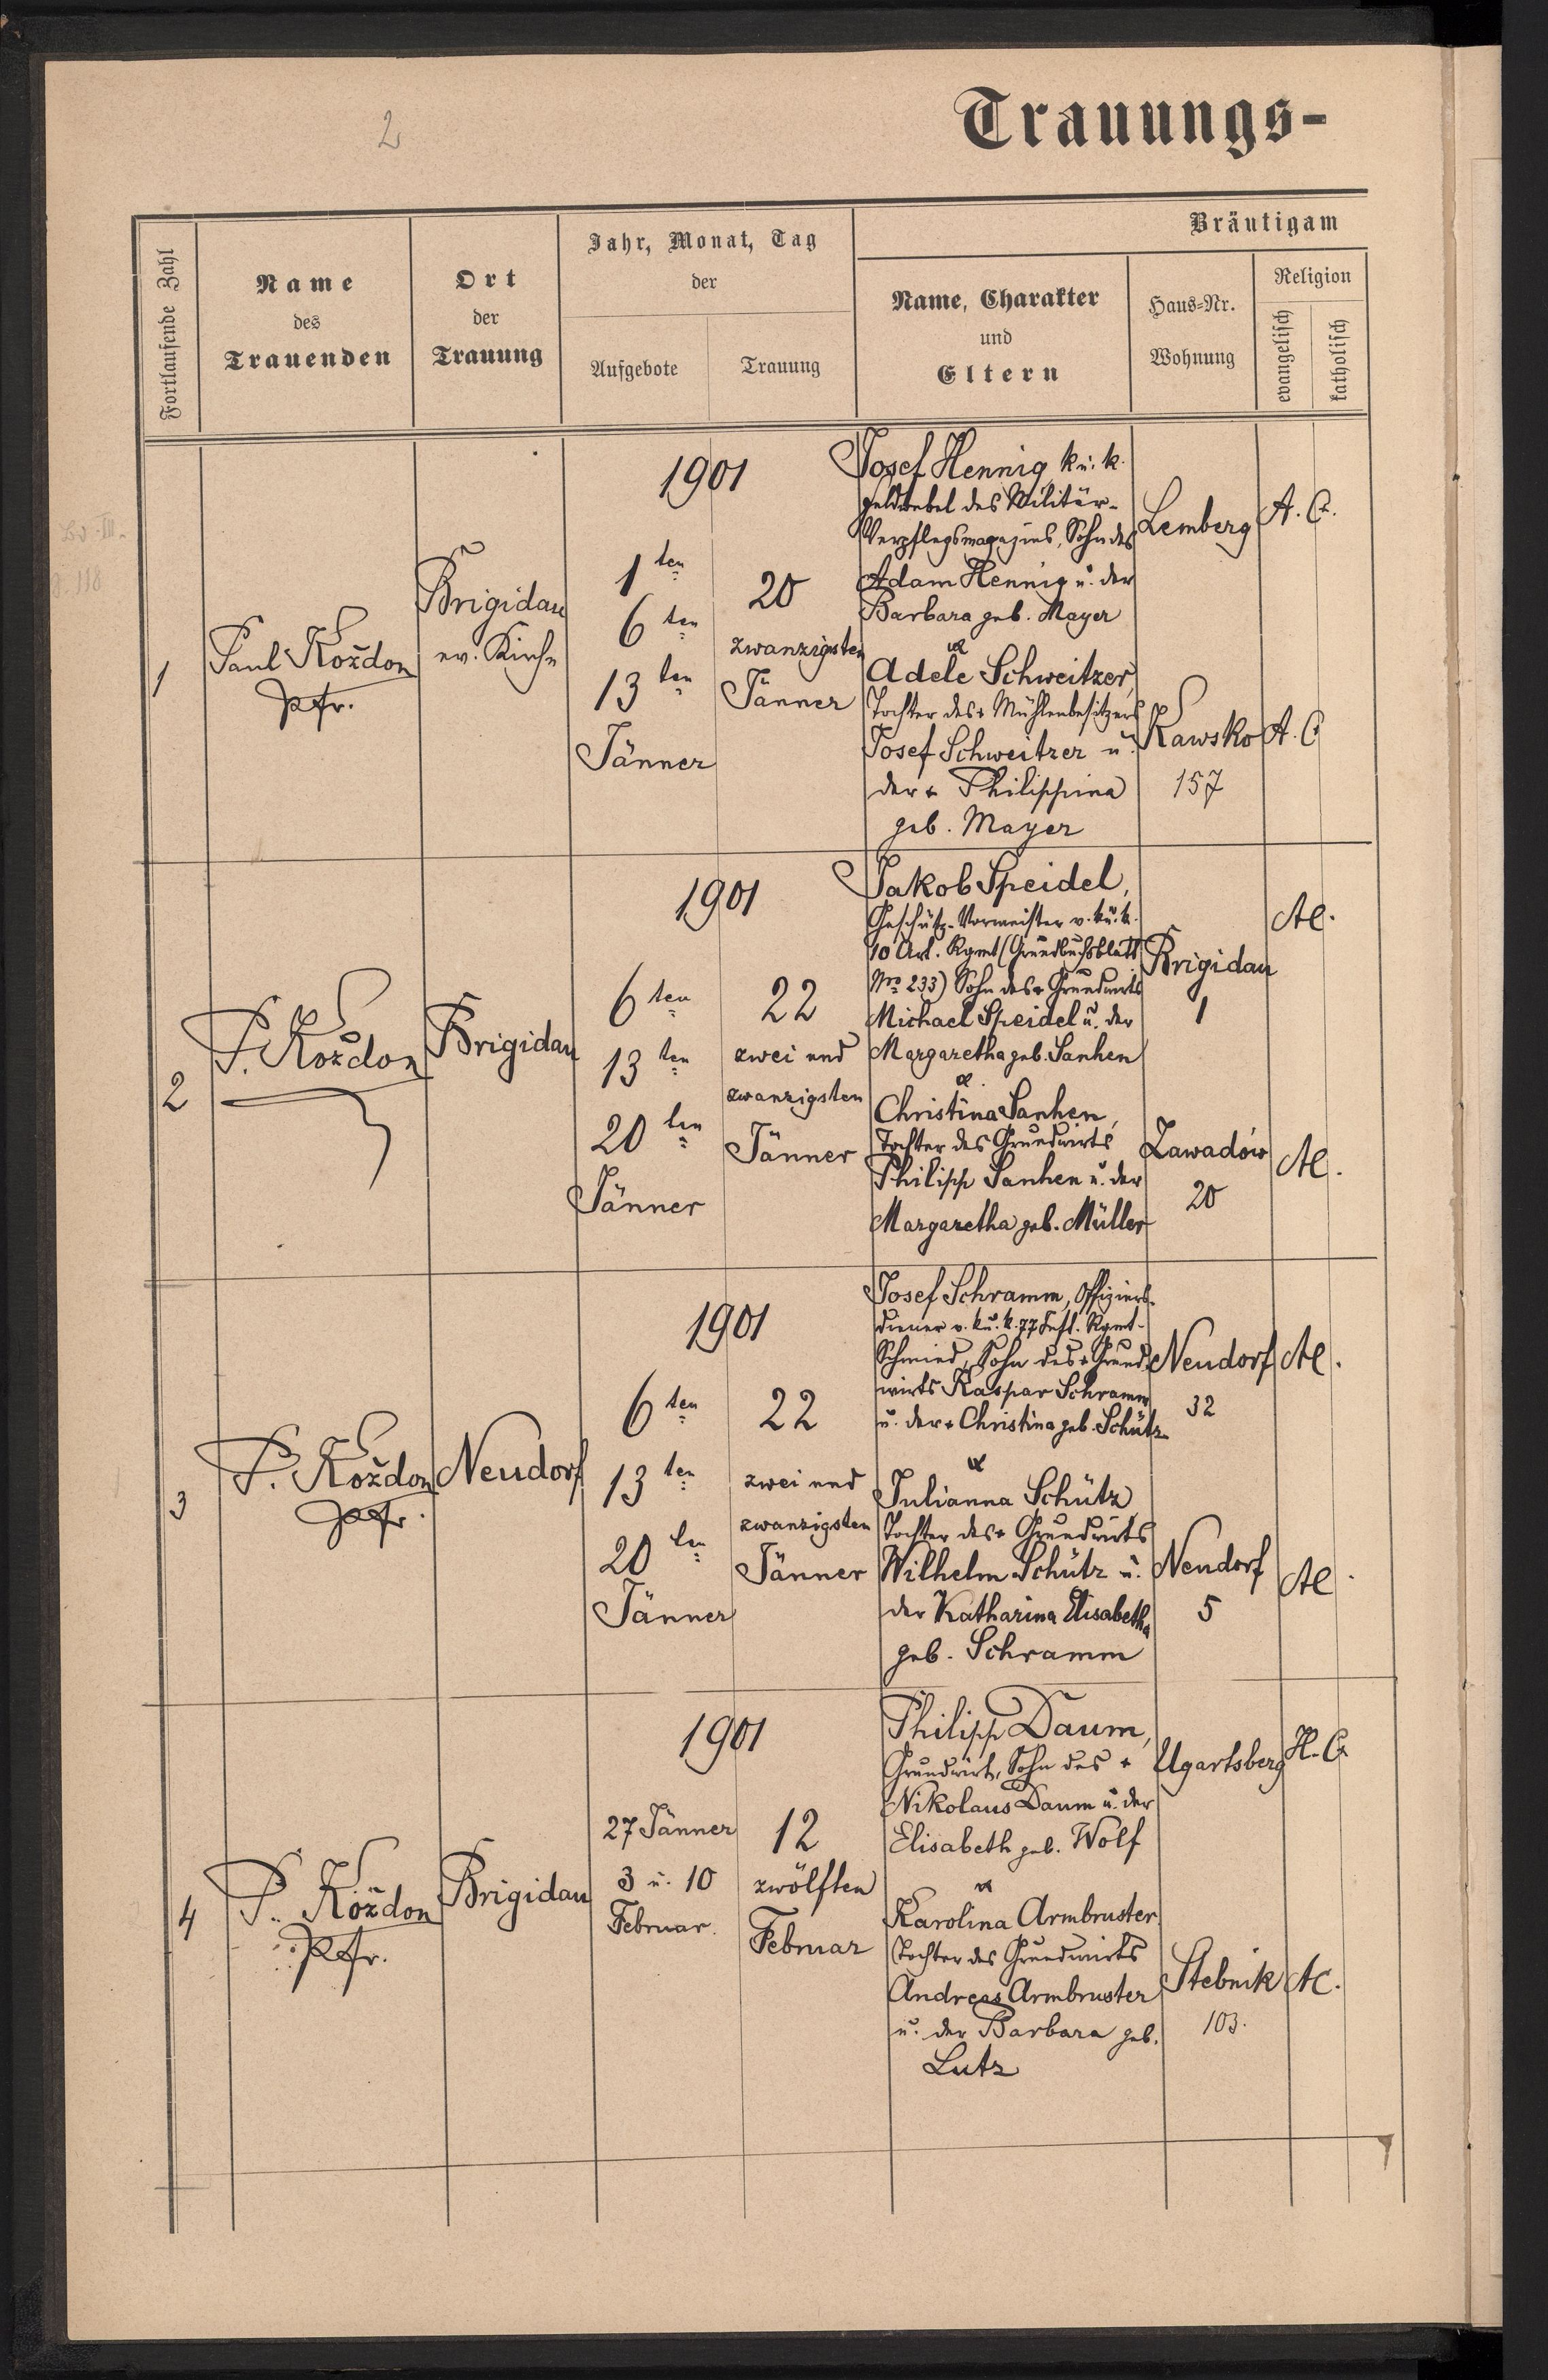 2
Trauungs-
Fortlaufende Zahl
Name
des
Trauenden
Ort
der
Trauung
Jahr, Monat, Tag
der
Aufgebote
Trauung
Bräutigam
Name, Charakter
und
Eltern
Haus-Nr.
Wohnung
Religion
evangelisch
katholisch
1
Paul Koždon
Pfr.
Brigidau
ev. Kirche
1901
1ten
6ten
13ten
Jänner
20
zwanzigsten
Jänner
Josef Hennig k. u. k.
Feldwebel des Militär-
Verpflegsmagazins, Sohn des
Adam Hennig u. der
Barbara geb. Mayer
Adele Schweitzer,
Tochter des + Mühlenbesitzers
Josef Schweitzer u.
der + Philippina
geb. Mayer
Lemberg
A. C.
Kawsko
157
A. C
2
P. Koždon
Brigidau
1901
6ten
13ten
20ten
Jänner
22
zwei und
zwanzigsten
Jänner
Jakob Speidel,
Geschütz-Vormeister v. k. u. k.
10 Art. Rgmt (Grundbuchsblatt
Nro 233) Sohn des + Grundwirts
Michael Speidel u. der
Margaretha geb. Sanhen
Christina Sanhen,
Tochter des Grundwirts
Philipp Sanhen u. der
Margaretha geb. Müller
Brigidau
1
AC.
Zawadów
20
AC.
3
P. Koždon
Pfr.
Neudorf
1901
6ten
13ten
20ten
Jänner
22
zwei und
zwanzigsten
Jänner
Josef Schramm, Offiziers-
diener v. k. u. k. 77 Inft. Rgmt-
Schmied, Sohn des + Grund-
wirts Kaspar Schramm
u. der + Christina geb. Schütz
Julianna Schütz,
Tochter des + Grundwirts
Wilhelm Schütz u.
der Katharina Elisabetha
geb. Schramm
Neudorf
32
AC.
Neudorf
5
AC.
4
P. Koždon
Pfr.
Brigidau
1901
27 Jänner
3 u. 10
Februar.
12
zwölften
Februar
Philipp Daum,
Grundwirt, Sohn des +
Nikolaus Daum u. der
Elisabeth geb. Wolf
Karolina Armbruster
Tochter des Grundwirts
Andreas Armbruster
u. der Barbara geb.
Lutz
Ugartsberg
H. C.
Stebnik
103.
AC.